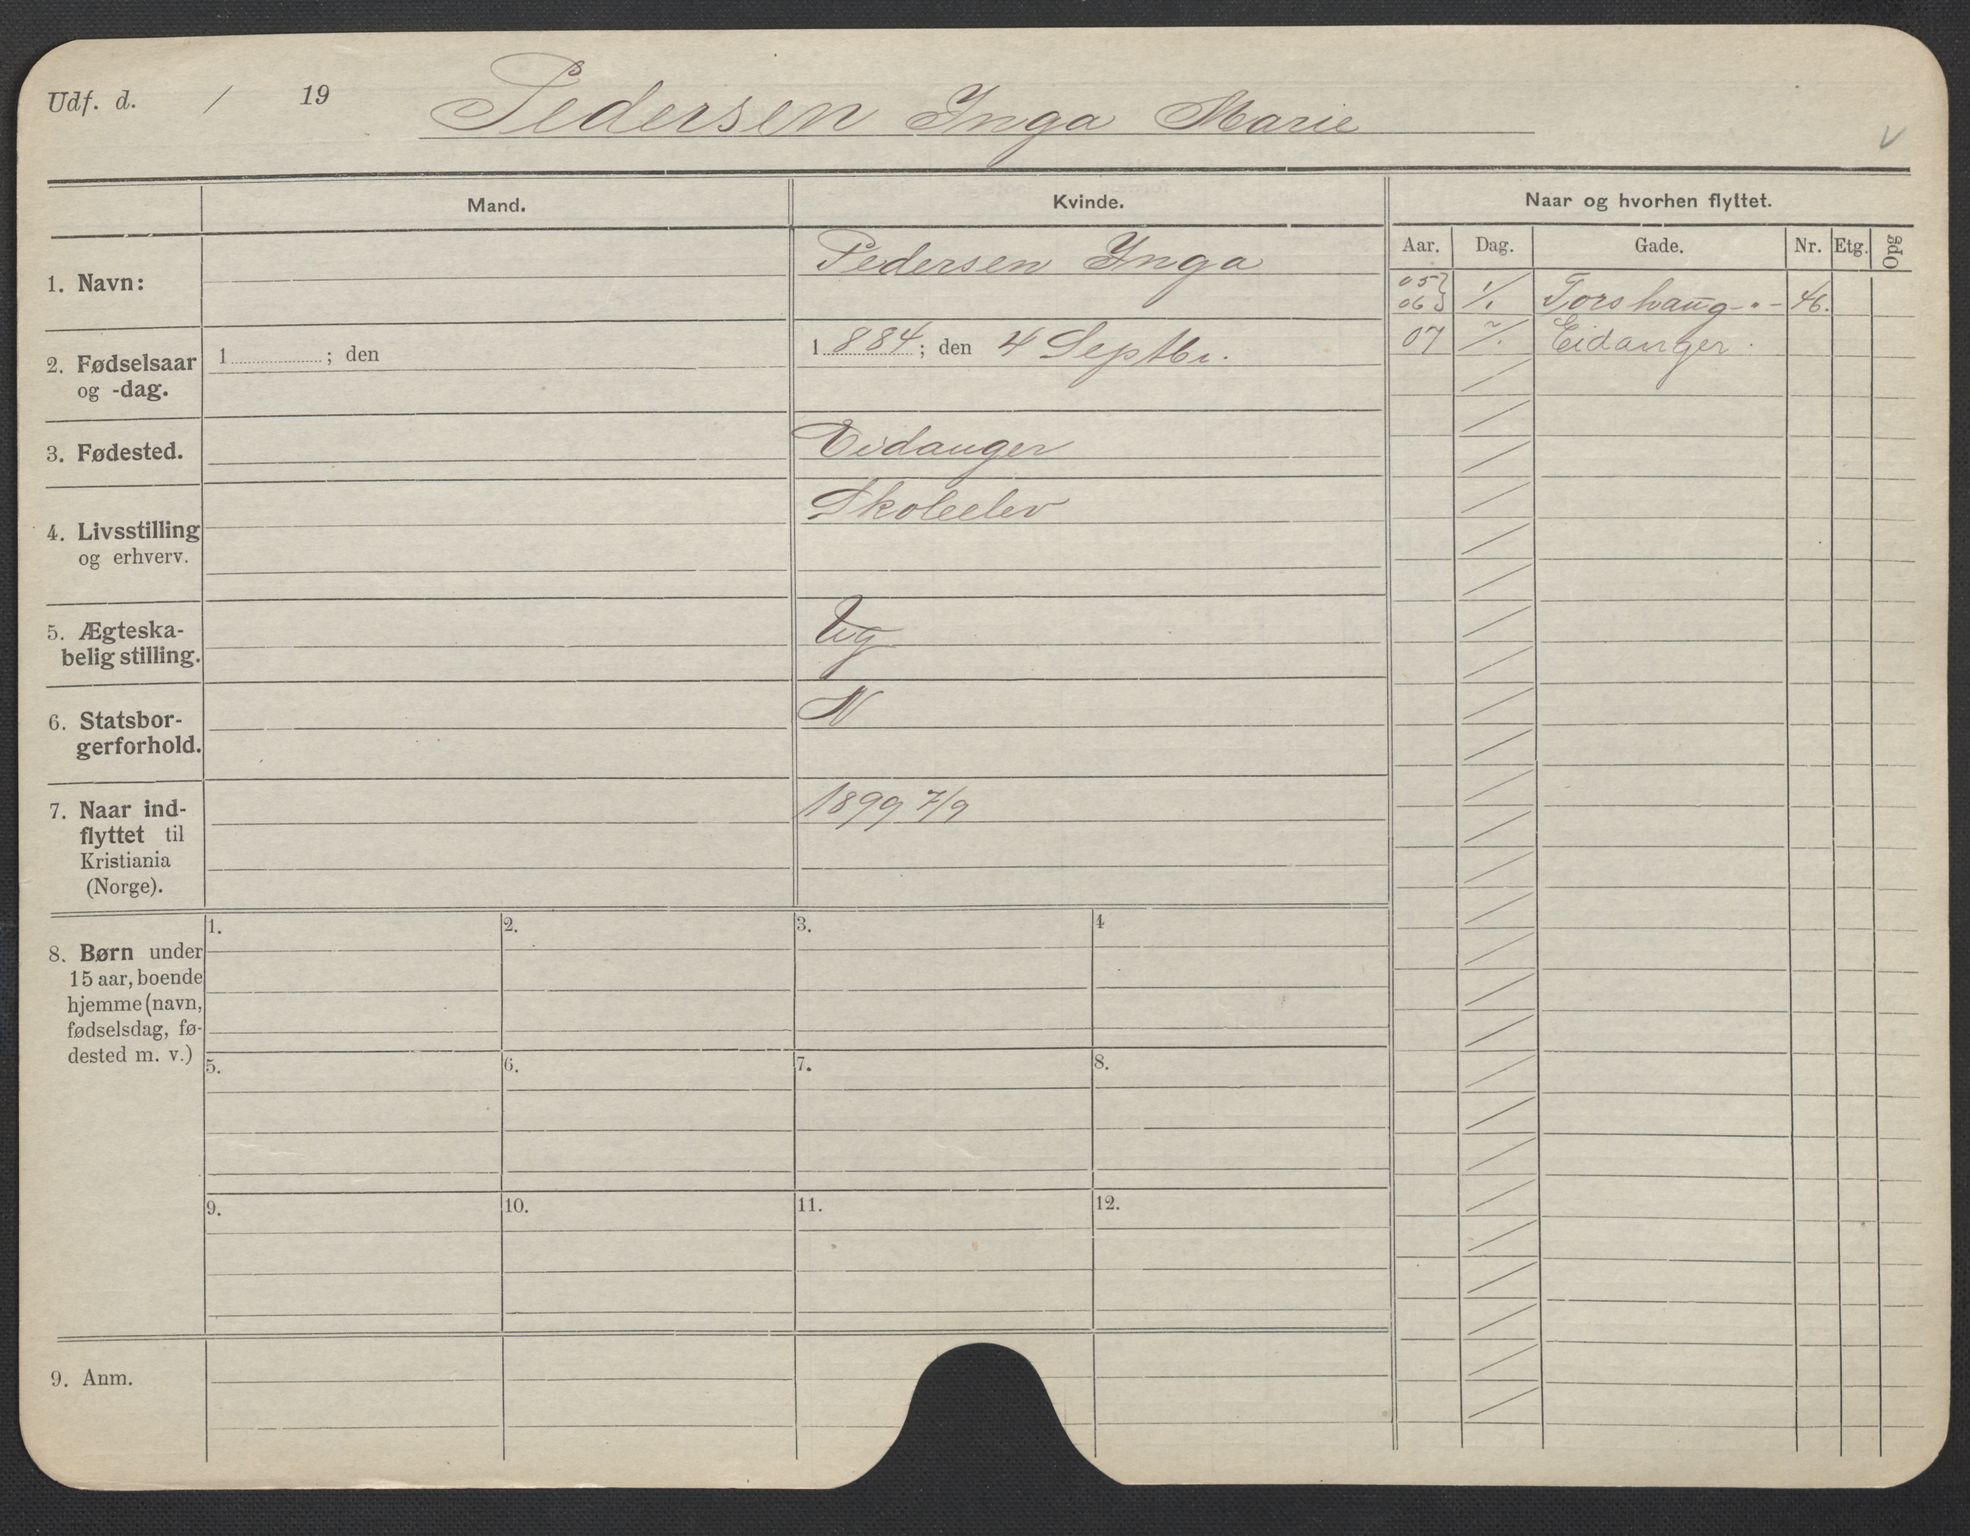 Udf. d. / 19 Pedersen Inga Marie
Mand. Kvinde. Naar og hvorhen flyttet.
Aar. Dag. Gade. Nr. Etg. Opg
1. Navn: Pedersen Inga
05 } 06 } 1/1 Torshaug - 46.
07 Eidanger.
2. Fødselsaar
og -dag.
1 ; den
1884; den 4 Septbr.
3. Fødested. Eidanger
4. Livsstilling
og erhverv.
Skoleelev
5. Ægteska-
belig stilling.
Ug
6. Statsbor-
gerforhold.
N
7. Naar ind-
flyttet til
Kristiania
(Norge).
1899 7/9
8. Børn under
15 aar, boende
hjemme (navn,
fødselsdag, fø-
dested m. v.)
1. 2. 3. 4
5. 6. 7. 8.
9. 10. 11. 12.
9. Anm.